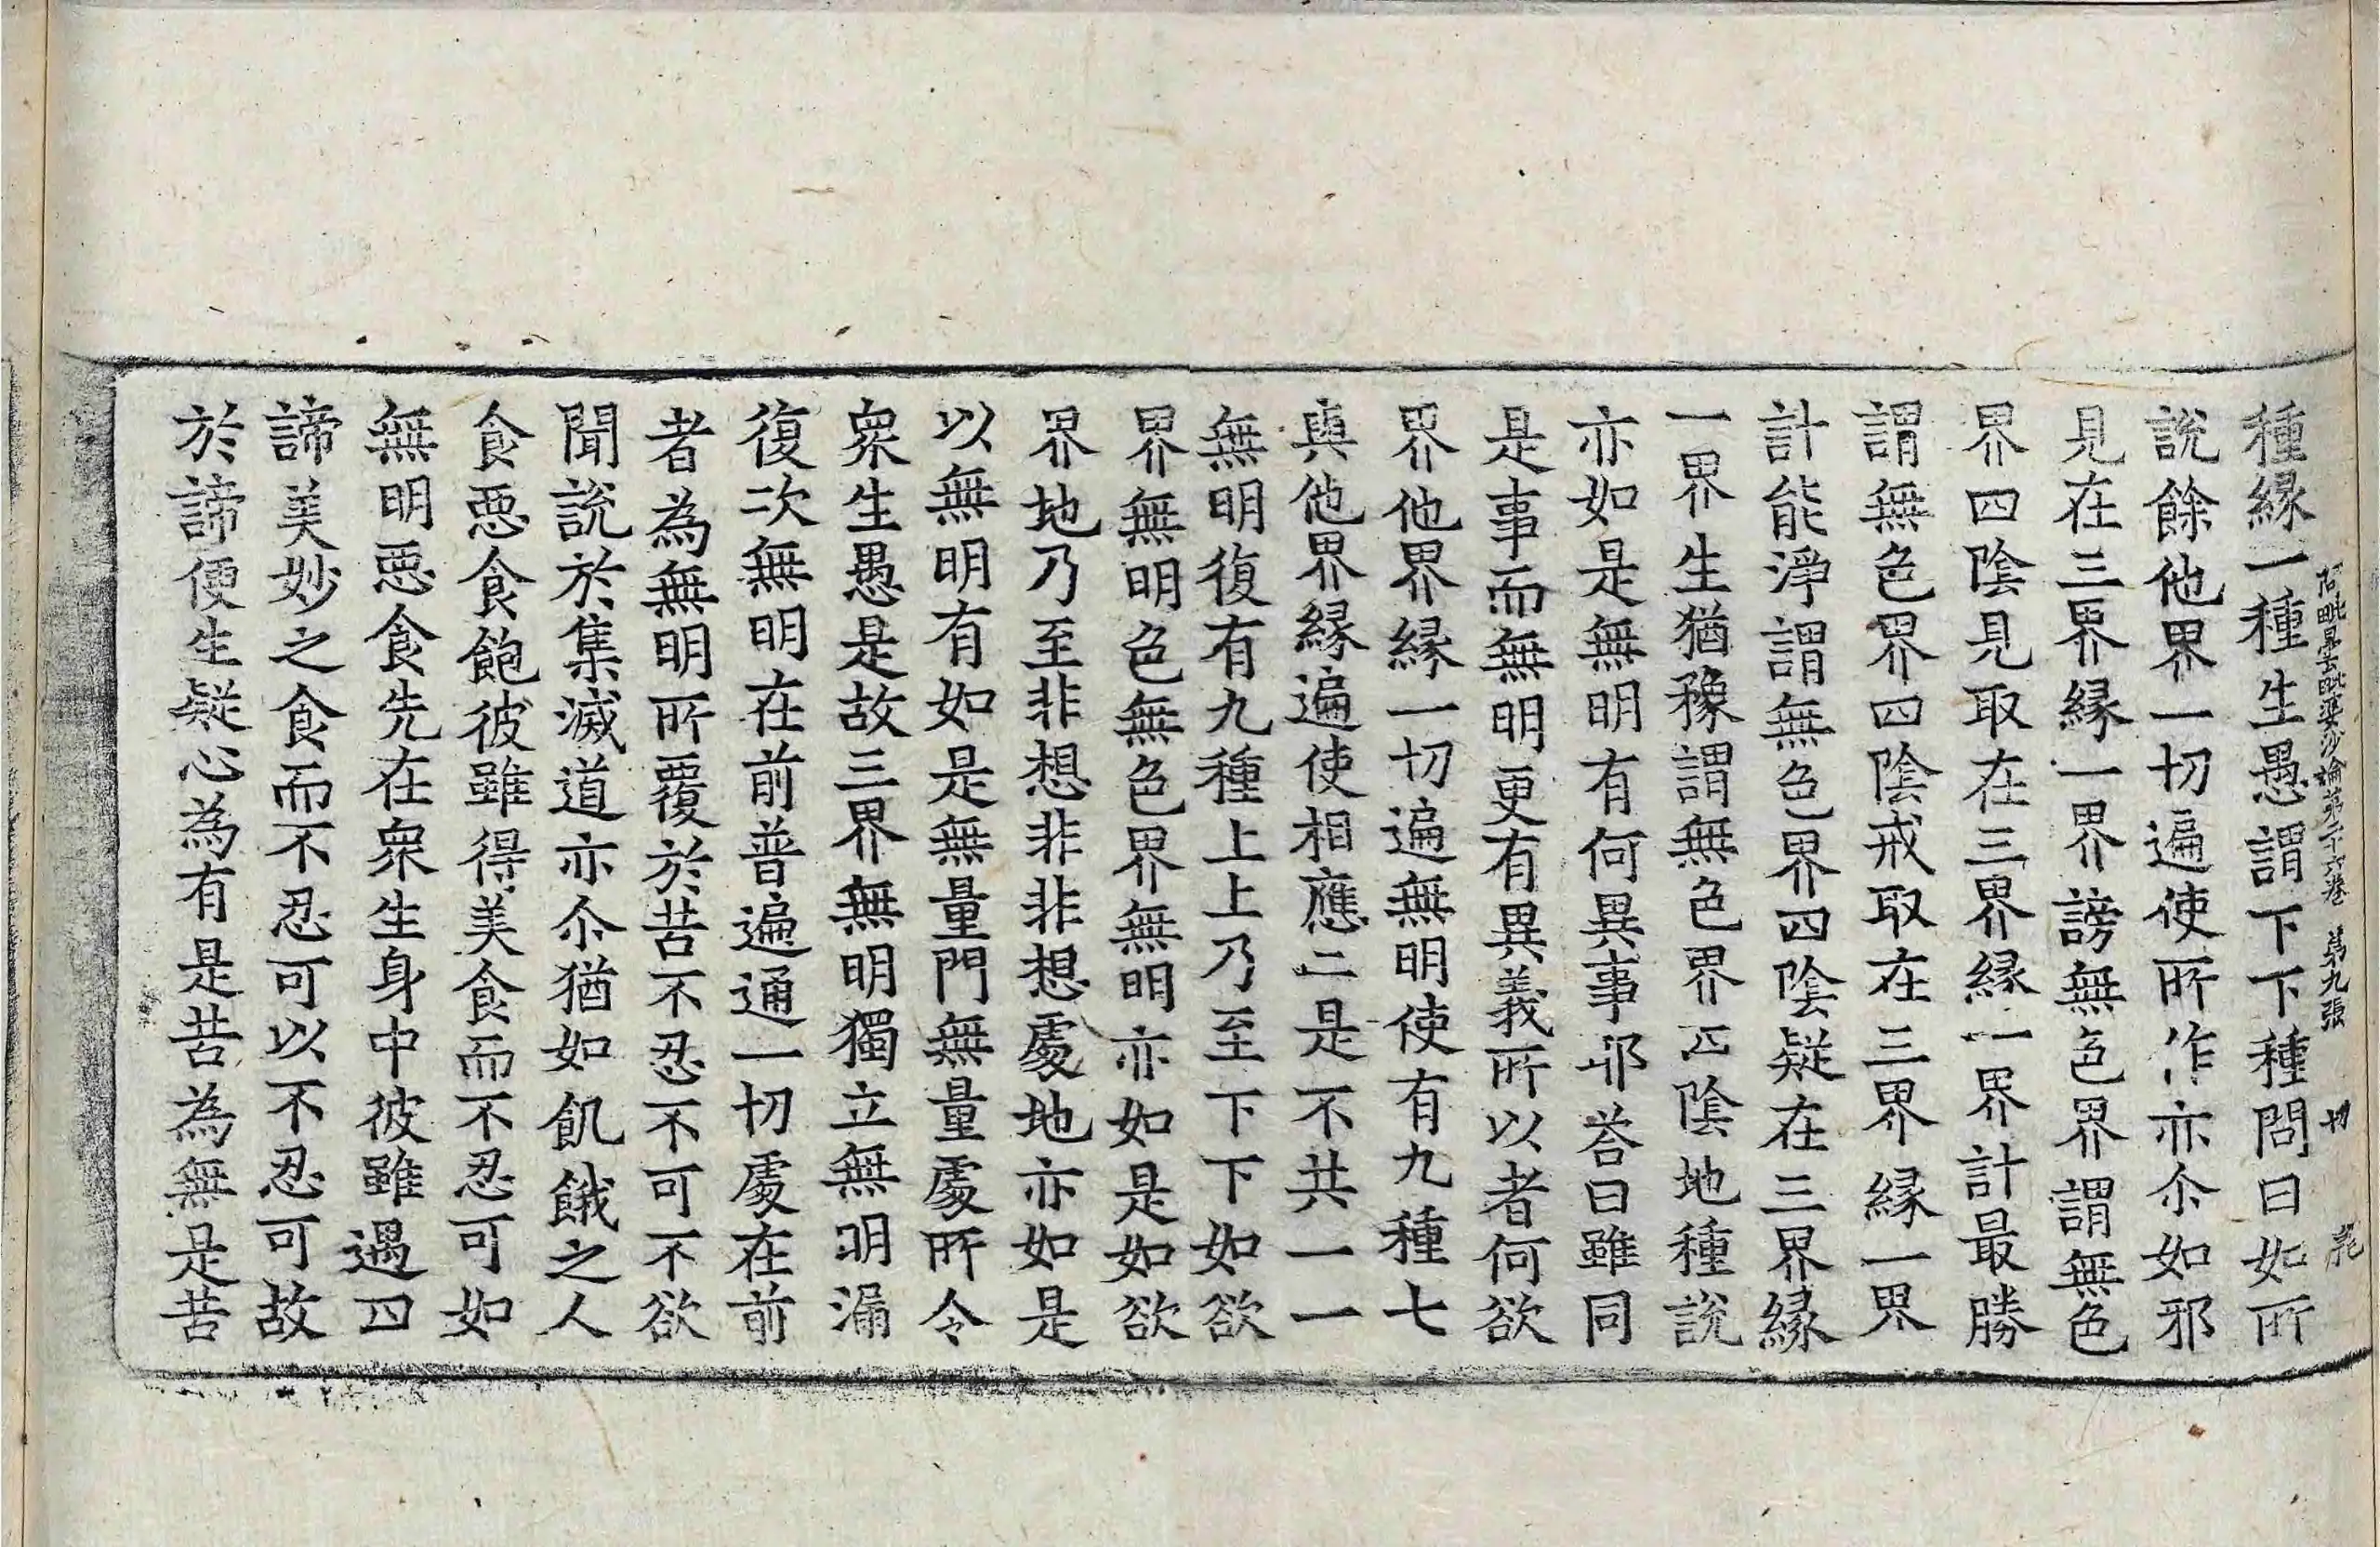 阿毗曇毗婆沙論第二十六卷 第九張 切
種縁一種生愚謂下下種問曰如所
說餘他界一切遍使所作亦尒如邪
見在三界縁一界謗無色界謂無色
界四陰見取在三界縁一界計最勝
謂無色界四陰戒取在三界縁一界
計能淨謂無色界四陰疑在三界縁
一界生猶豫謂無色界四陰地種說
亦如是無明有何異事耶荅曰雖同
是事而無明更有異義所以者何欲
界他界縁一切遍無明使有九種七
與他界縁遍使相應二是不共一一
無明復有九種上上乃至下下如欲
界無明色無色界無明亦如是如欲
界地乃至非想非非想處地亦如是
以無明有如是無量門無量處所令
衆生愚是故三界無明獨立無明漏
復次無明在前普遍通一切處在前
者為無明所覆於苦不忍不可不欲
聞說於集滅道亦尒猶如飢餓之人
食惡食飽彼雖得美食而不忍可如
無明惡食先在衆生身中彼雖遇四
諦美妙之食而不忍可以不忍可故
於諦便生疑心為有是苦為無是苦